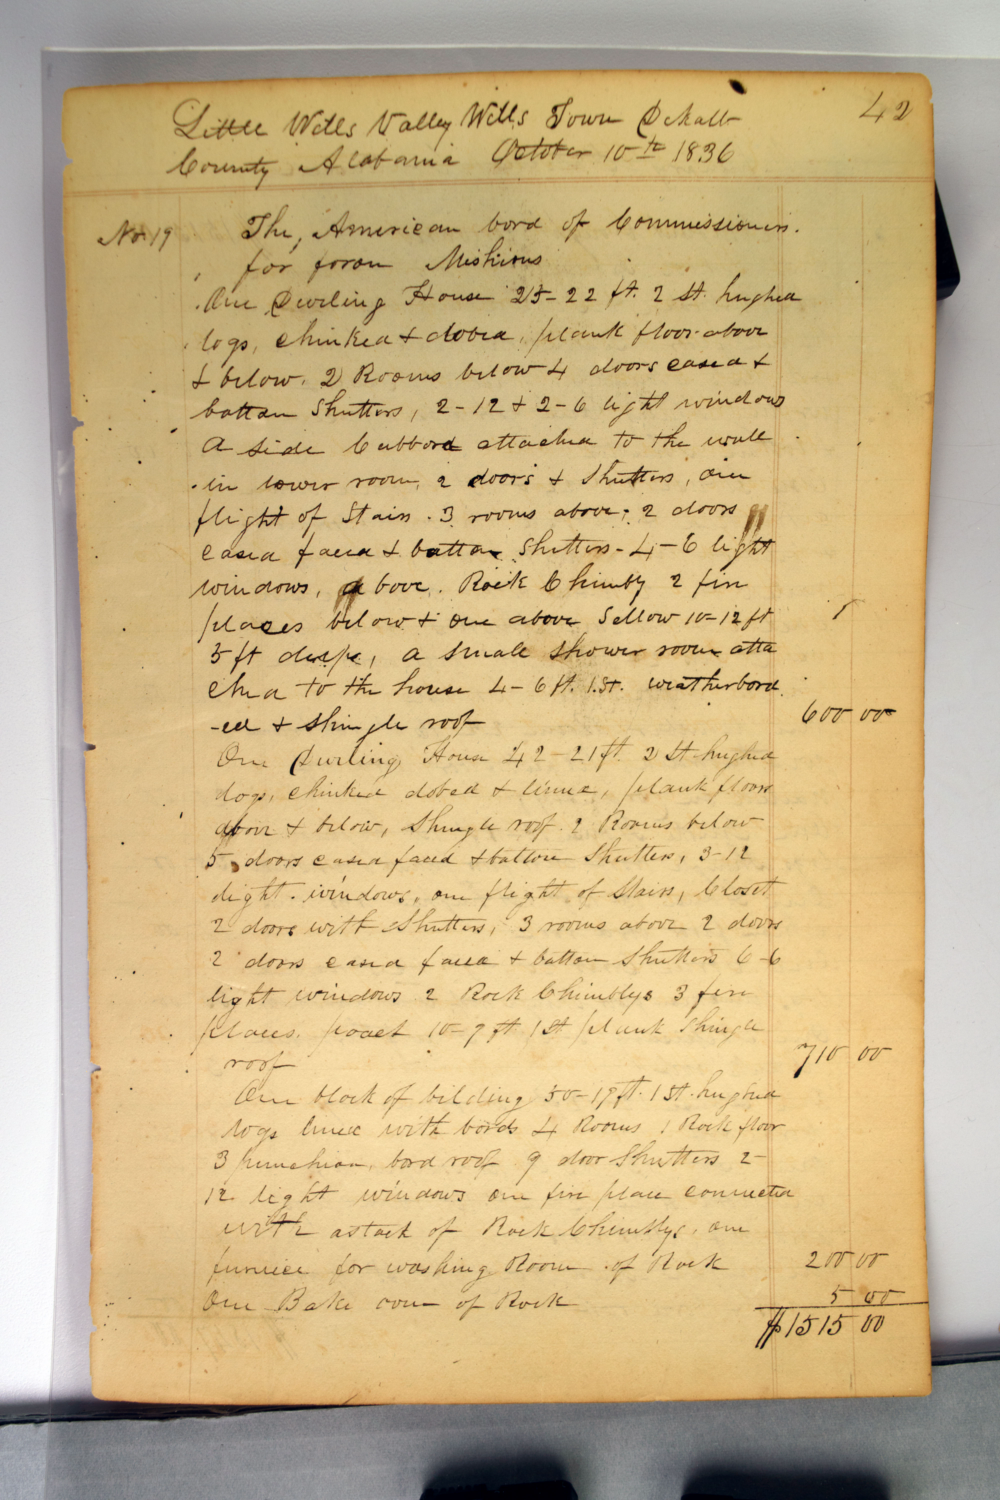 42
Little Wills Valley Wills Town Dekalb
County Alabama October 10th 1836
No. 19 The, American bord of Commissioners.
for foran Mishions
One Dwiling House 25-22 ft. 2 St. hughed
logs, chinked & dobed, plank floor above
& below. 2 Rooms below 4 doors cased &
battan Shutters, 2-12 & 2-6 light windows
A side Cubbord attached to the wall
in lower room, 2 doors & Shutters, one
flight of Stairs. 3 rooms above, 2 doors
cased faced & battan Shutters - 4-6 light
windows, above. Rock Chimbly 2 fire
places below & one above Sellow 10-12 ft
5 ft deepe, a small Shower room atta
ched to the house 4-6 ft. 1 St. weatherbord
-ed & Shingle roof 600 00
One Dwiling House 42-21 ft. 2 St hughed
logs, chinked dobed & linne, plank floors
above & below, Shingle roof. 2 Rooms below
5 doors cased faced & batton Shutters, 3-12
light windows, one flight of Stairs, Closet
2 doors with Shutters, 3 rooms above 2 doors
2 doors cased faced & battan Shutters 6-6
light windows 2 Rock Chimblys 3 fire
places. poact 10-7 ft 1 St plank Shingle
roof 710 00
One block of bilding 50-19 ft. 1 St. hughed
logs lined with bords 4 Rooms 1 Rock floor
3 punchion, bord roof 9 door Shutters 2-
12 light windows one fire place connected
with a stack of Rock Chimblys, one
furnice for washing Room of Rock 200 00
One Bake oven of Rock 5 00
$1515 00